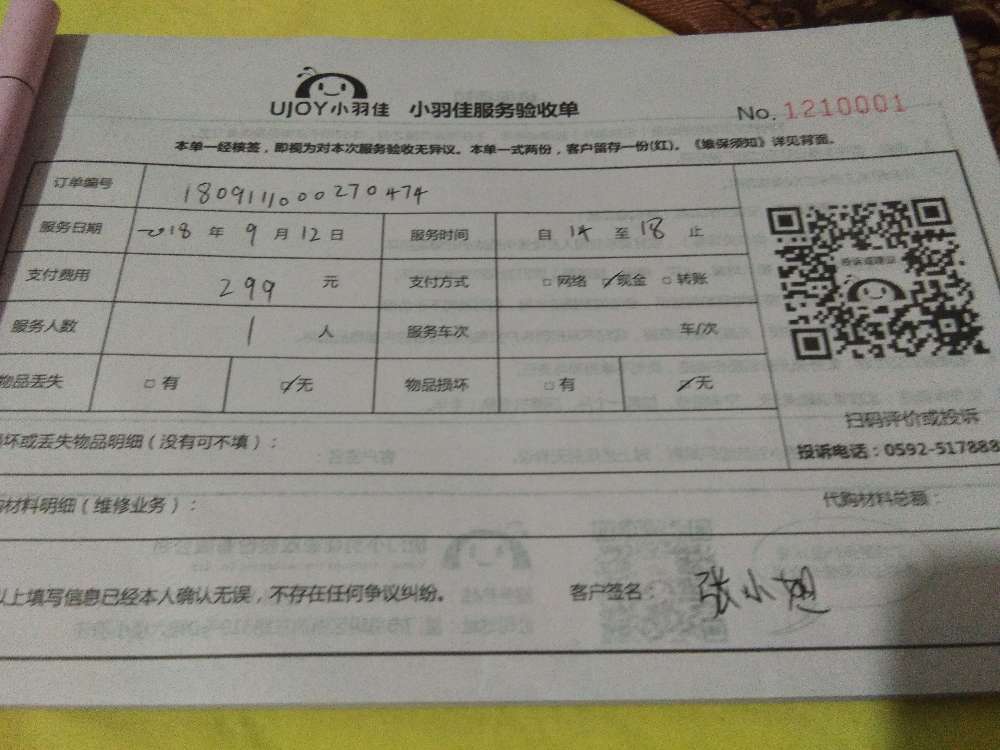 UJOY小羽佳 小羽佳服务验收单 No. 1210001
本单一经核签，即视为对本次服务验收无异议。本单一式两份，客户留存一份(红)。《维保须知》详见背面。
订单编号 180911000270474
服务日期 2018 年 9 月 12 日 服务时间 自 14 至 18 止
支付费用 299 元 支付方式 □ 网络 ☑现金 □ 转账
投诉或建议
服务人数 1 人 服务车次 车/次
物品丢失 □ 有 ☑无 物品损坏 □有 ☑无
扫码评价或投诉
坏或丢失物品明细（没有可不填）：
投诉电话：0592-517888
购材料明细（维修业务）： 代购材料总额：
以上填写信息已经本人确认无误，不存在任何争议纠纷。 客户签名： 张小